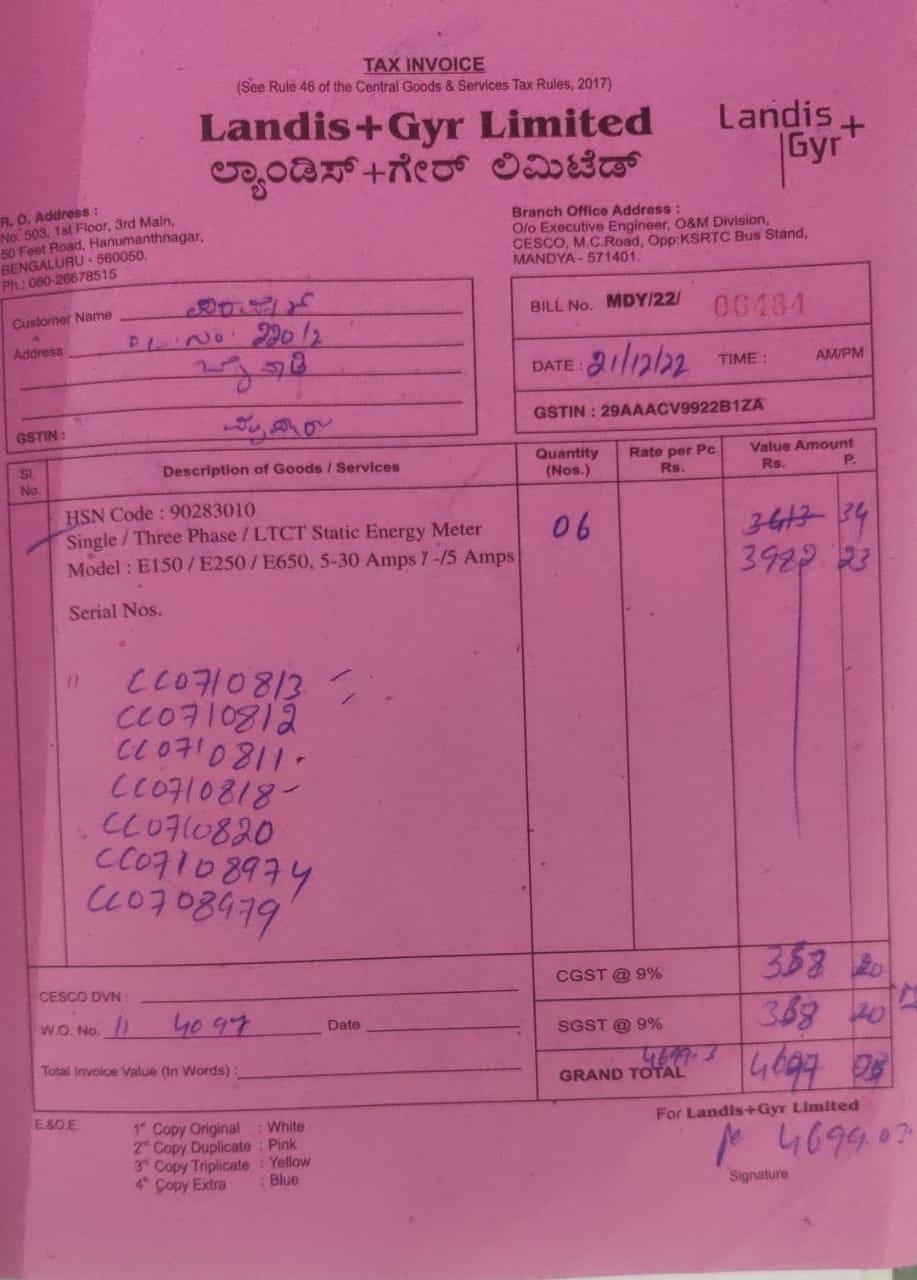 TAX INVOICE
(See Rule 46 of the Central Goods & Services Tax Rules, 2017)
Landis+Gyr Limited
ಲ್ಯಾಂಡಿಸ್+ಗೇರ್ ಲಿಮಿಟೆಡ್
Landis+
Gyr
R. O. Address :
No. 503, 1st Floor, 3rd Main,
50 Feet Road, Hanumanthnagar,
BENGALURU - 560050.
Ph.: 080-26678515
Branch Office Address :
O/o Executive Engineer, O&M Division,
CESCO, M.C.Road, Opp:KSRTC Bus Stand,
MANDYA - 571401.
Customer Name
Address 220/2
GSTIN :
BILL No. MDY/22/ 06484
DATE : 21/12/22 TIME : AM/PM
GSTIN : 29AAACV9922B1ZA
Sl. No. Description of Goods / Services Quantity (Nos.) Rate per Pc Rs. Value Amount Rs. P.
HSN Code : 90283010
Single / Three Phase / LTCT Static Energy Meter 06 3413 34
Model : E150 / E250 / E650, 5-30 Amps / -/5 Amps 3982 23
Serial Nos.
CC0710813
CC0710812
CC0710811
CC0710818
CC0710820
CC07108974
CC0708979
CGST @ 9% 358 20
CESCO DVN :
W.O. No. 11 4097 Date
SGST @ 9% 358 20
Total Invoice Value (In Words) :
4699-3
GRAND TOTAL 4697
E.&O.E.
1st Copy Original : White
2nd Copy Duplicate : Pink
3rd Copy Triplicate : Yellow
4th Copy Extra : Blue
For Landis+Gyr Limited
4699.03
Signature